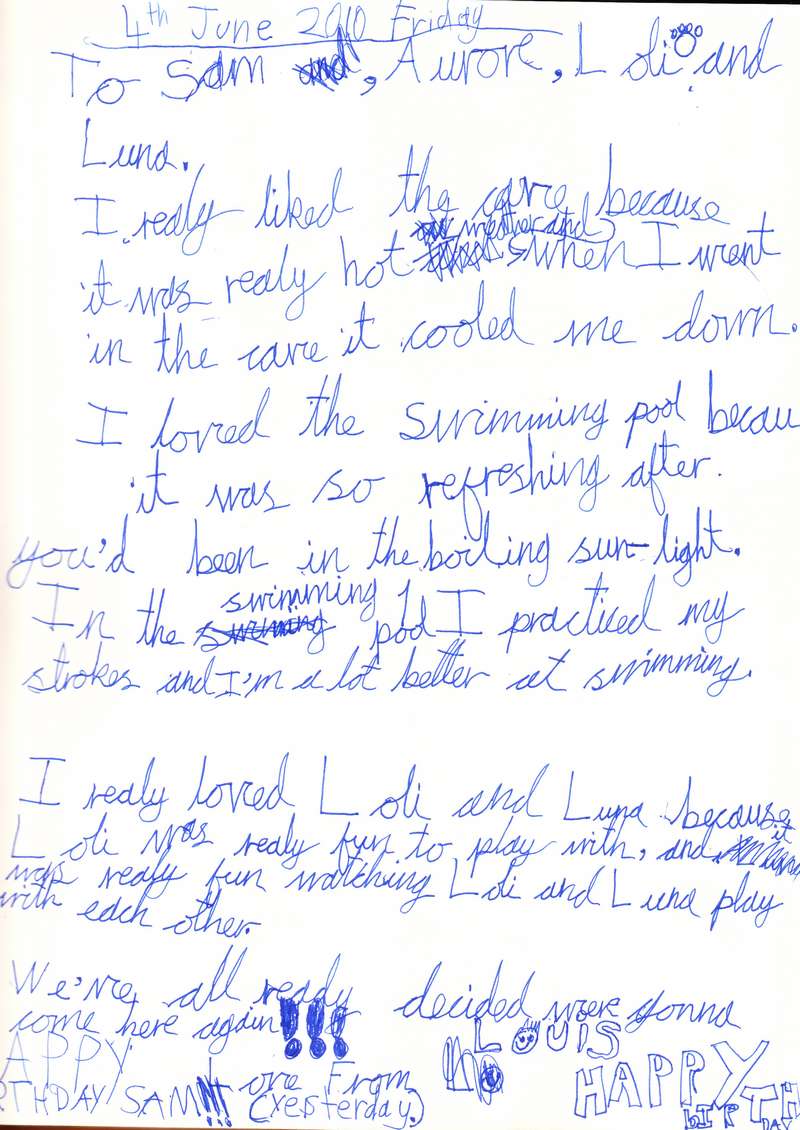 4th June 2010 Friday
To Sam, Aurore, Loli and
Luna.
I realy liked the cave because
it was realy hot weather and when I went
in the cave it cooled me down.
I loved the swimming pool becau
it was so refreshing after.
you'd been in the boiling sun-light.
In the swimming pool I practiced my
strokes and I'm a lot better at swimming.
I realy loved Loli and Luna because
Loli was realy fun to play with, and it
was realy fun watching Loli and Luna play
with each other.
We've all ready decided were gonna
come here again!!!
Love From LOUIS
APPY
RTHDAY SAM!!! (Yesterday.)
HAPPY
bIRTH
DAY